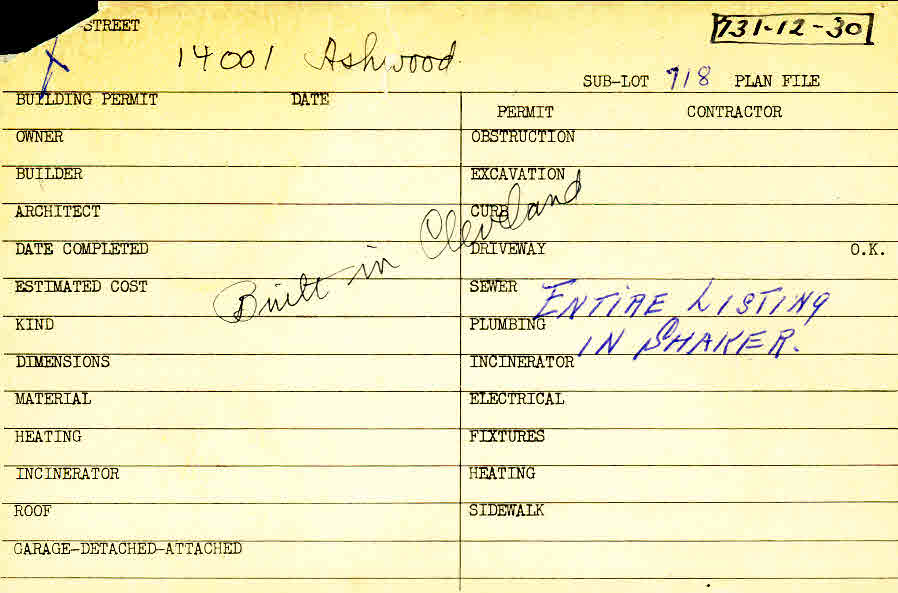 STREET 14001 Ashwood 731-12-30
SUB-LOT 718 PLAN FILE
BUILDING PERMIT DATE
PERMIT CONTRACTOR
OWNER
OBSTRUCTION
BUILDER
EXCAVATION
ARCHITECT
CURB
DATE COMPLETED
DRIVEWAY O.K.
Built in Cleveland
ESTIMATED COST
SEWER
ENTIRE LISTING
KIND
PLUMBING
IN SHAKER.
DIMENSIONS
INCINERATOR
MATERIAL
ELECTRICAL
HEATING
FIXTURES
INCINERATOR
HEATING
ROOF
SIDEWALK
GARAGE-DETACHED-ATTACHED